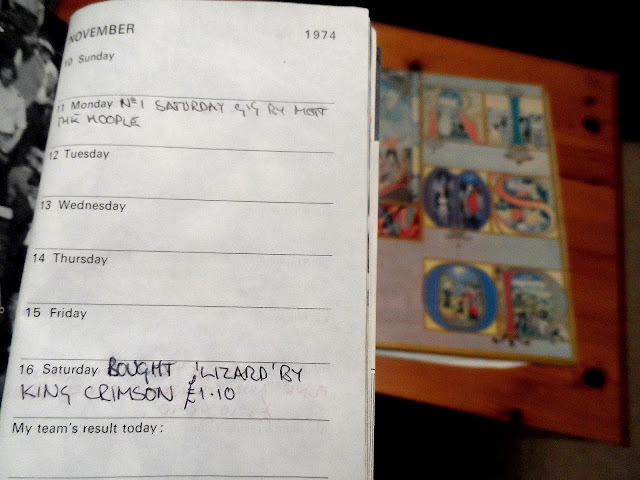 NOVEMBER 1974
10 Sunday
11 Monday Nº1 SATURDAY GIG BY MOTT
THE HOOPLE
12 Tuesday
13 Wednesday
14 Thursday
15 Friday
16 Saturday BOUGHT 'LIZARD' BY
KING CRIMSON £1.10
My team's result today: